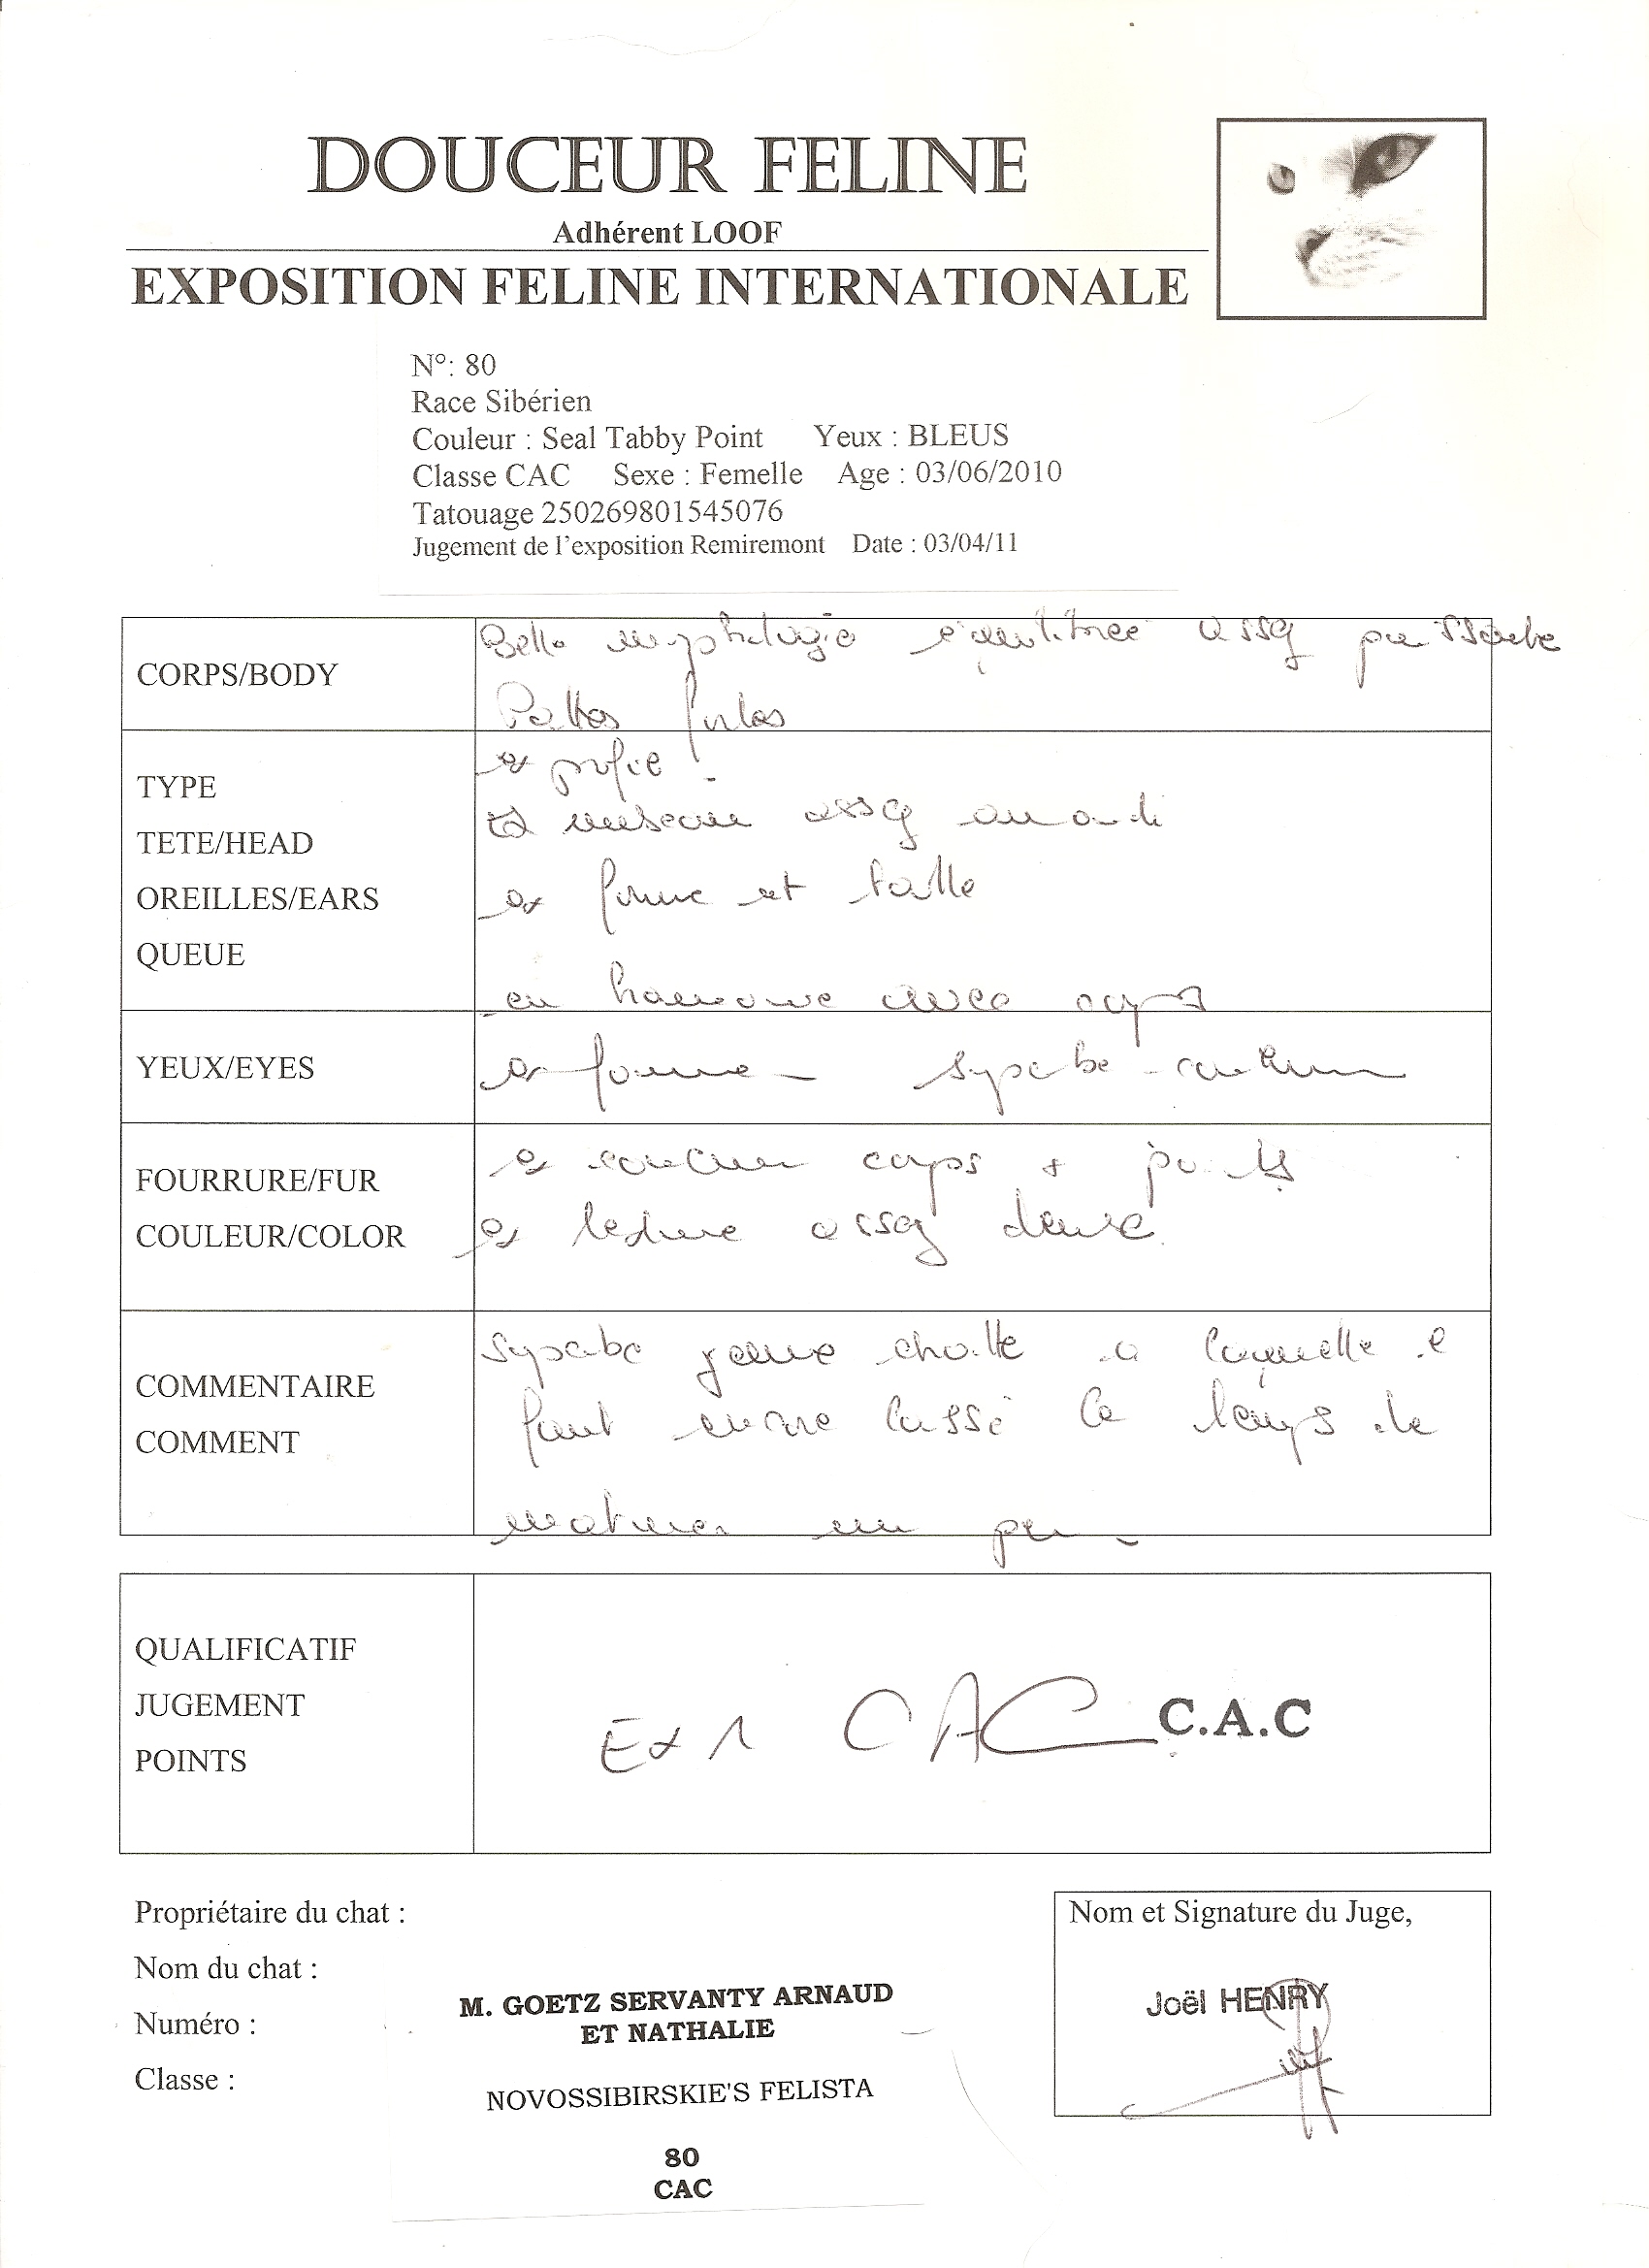 DOUCEUR FELINE
Adhérent LOOF
EXPOSITION FELINE INTERNATIONALE
N°: 80
Race Sibérien
Couleur : Seal Tabby Point Yeux : BLEUS
Classe CAC Sexe : Femelle Age : 03/06/2010
Tatouage 250269801545076
Jugement de l'exposition Remiremont Date : 03/04/11
CORPS/BODY
Belle morphologie équilibrée assez puissante
Pattes fortes
TYPE
TETE/HEAD
OREILLES/EARS
QUEUE
ex profil
ex museau assez arrondi
ex forme et taille
en harmonie avec corps
YEUX/EYES
ex forme - superbe couleur
FOURRURE/FUR
COULEUR/COLOR
ex couleur corps + points
ex texture assez dense
COMMENTAIRE
COMMENT
Superbe jeune chatte a laquelle il
faut encore laissé le temps de
maturer un peu -
QUALIFICATIF
JUGEMENT
POINTS
Ex 1 CAC C.A.C
Propriétaire du chat :
Nom du chat :
Numéro :
Classe :
M. GOETZ SERVANTY ARNAUD
ET NATHALIE
NOVOSSIBIRSKIE'S FELISTA
80
CAC
Nom et Signature du Juge,
Joël HENRY